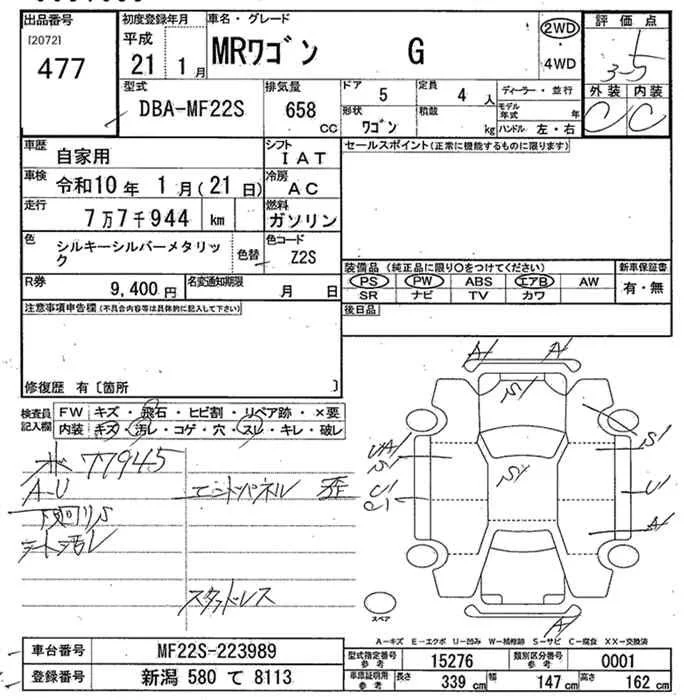 出品番号
[2072]
477
初度登録年月
平成
21 1月
車名・グレード
MRワゴン G
2WD
4WD
評価点
3.5
外装 内装
C C
型式
DBA-MF22S
排気量
658 CC
ドア 5
定員 4 人
形状 ワゴン
積載 kg
ディーラー・並行
モデル年式 年
ハンドル 左・右
車歴
自家用
シフト
IAT
セールスポイント(正常に機能するものに限ります)
車検
令和10年 1月(21日)
冷房
AC
走行
7万7千944 km
燃料
ガソリン
色
シルキーシルバーメタリック
色替
色コード
Z2S
装備品(純正品に限り○をつけてください)
PS PW ABS エアB AW
SR ナビ TV カワ
新車保証書
有・無
R券
9,400円
名変通知期限
月 日
後日品
注意事項申告欄(不具合内容等は具体的に記入して下さい)
修復歴 有〔箇所 〕
検査員記入欄
FW キズ・飛石・ヒビ割・リペア跡・×要
内装 キズ・汚レ・コゲ・穴・スレ・キレ・破レ
ホ 77945
A-U
下廻りS
シート汚レ
エンドパネル 歪
スタッドレス
A1 A1
S1
UA1
S1
S1
S1
U1
A1
A1
スペア
A-キズ E-エクボ U-凹み W-補修跡 S-サビ C-腐食 XX-交換済
車台番号
MF22S-223989
登録番号
新潟 580 て 8113
型式指定番号 参考
15276
類別区分番号 参考
0001
車庫証明用 参考
長さ 339 cm
幅 147 cm
高さ 162 cm